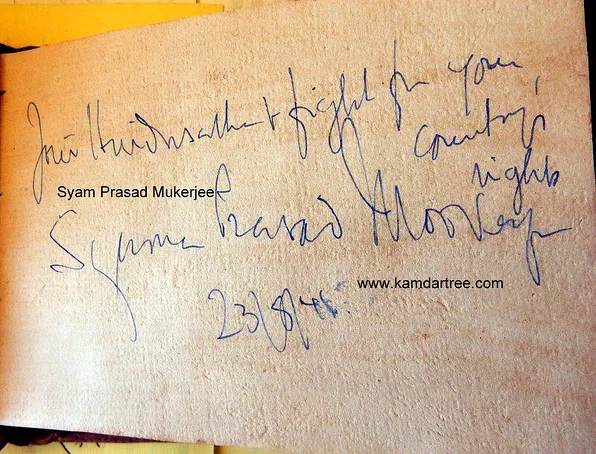 Join Hindusabha fight for your
country's
rights
Syam Prasad Mukerjee
Syama Prasad Mookerjee
www.kamdartree.com